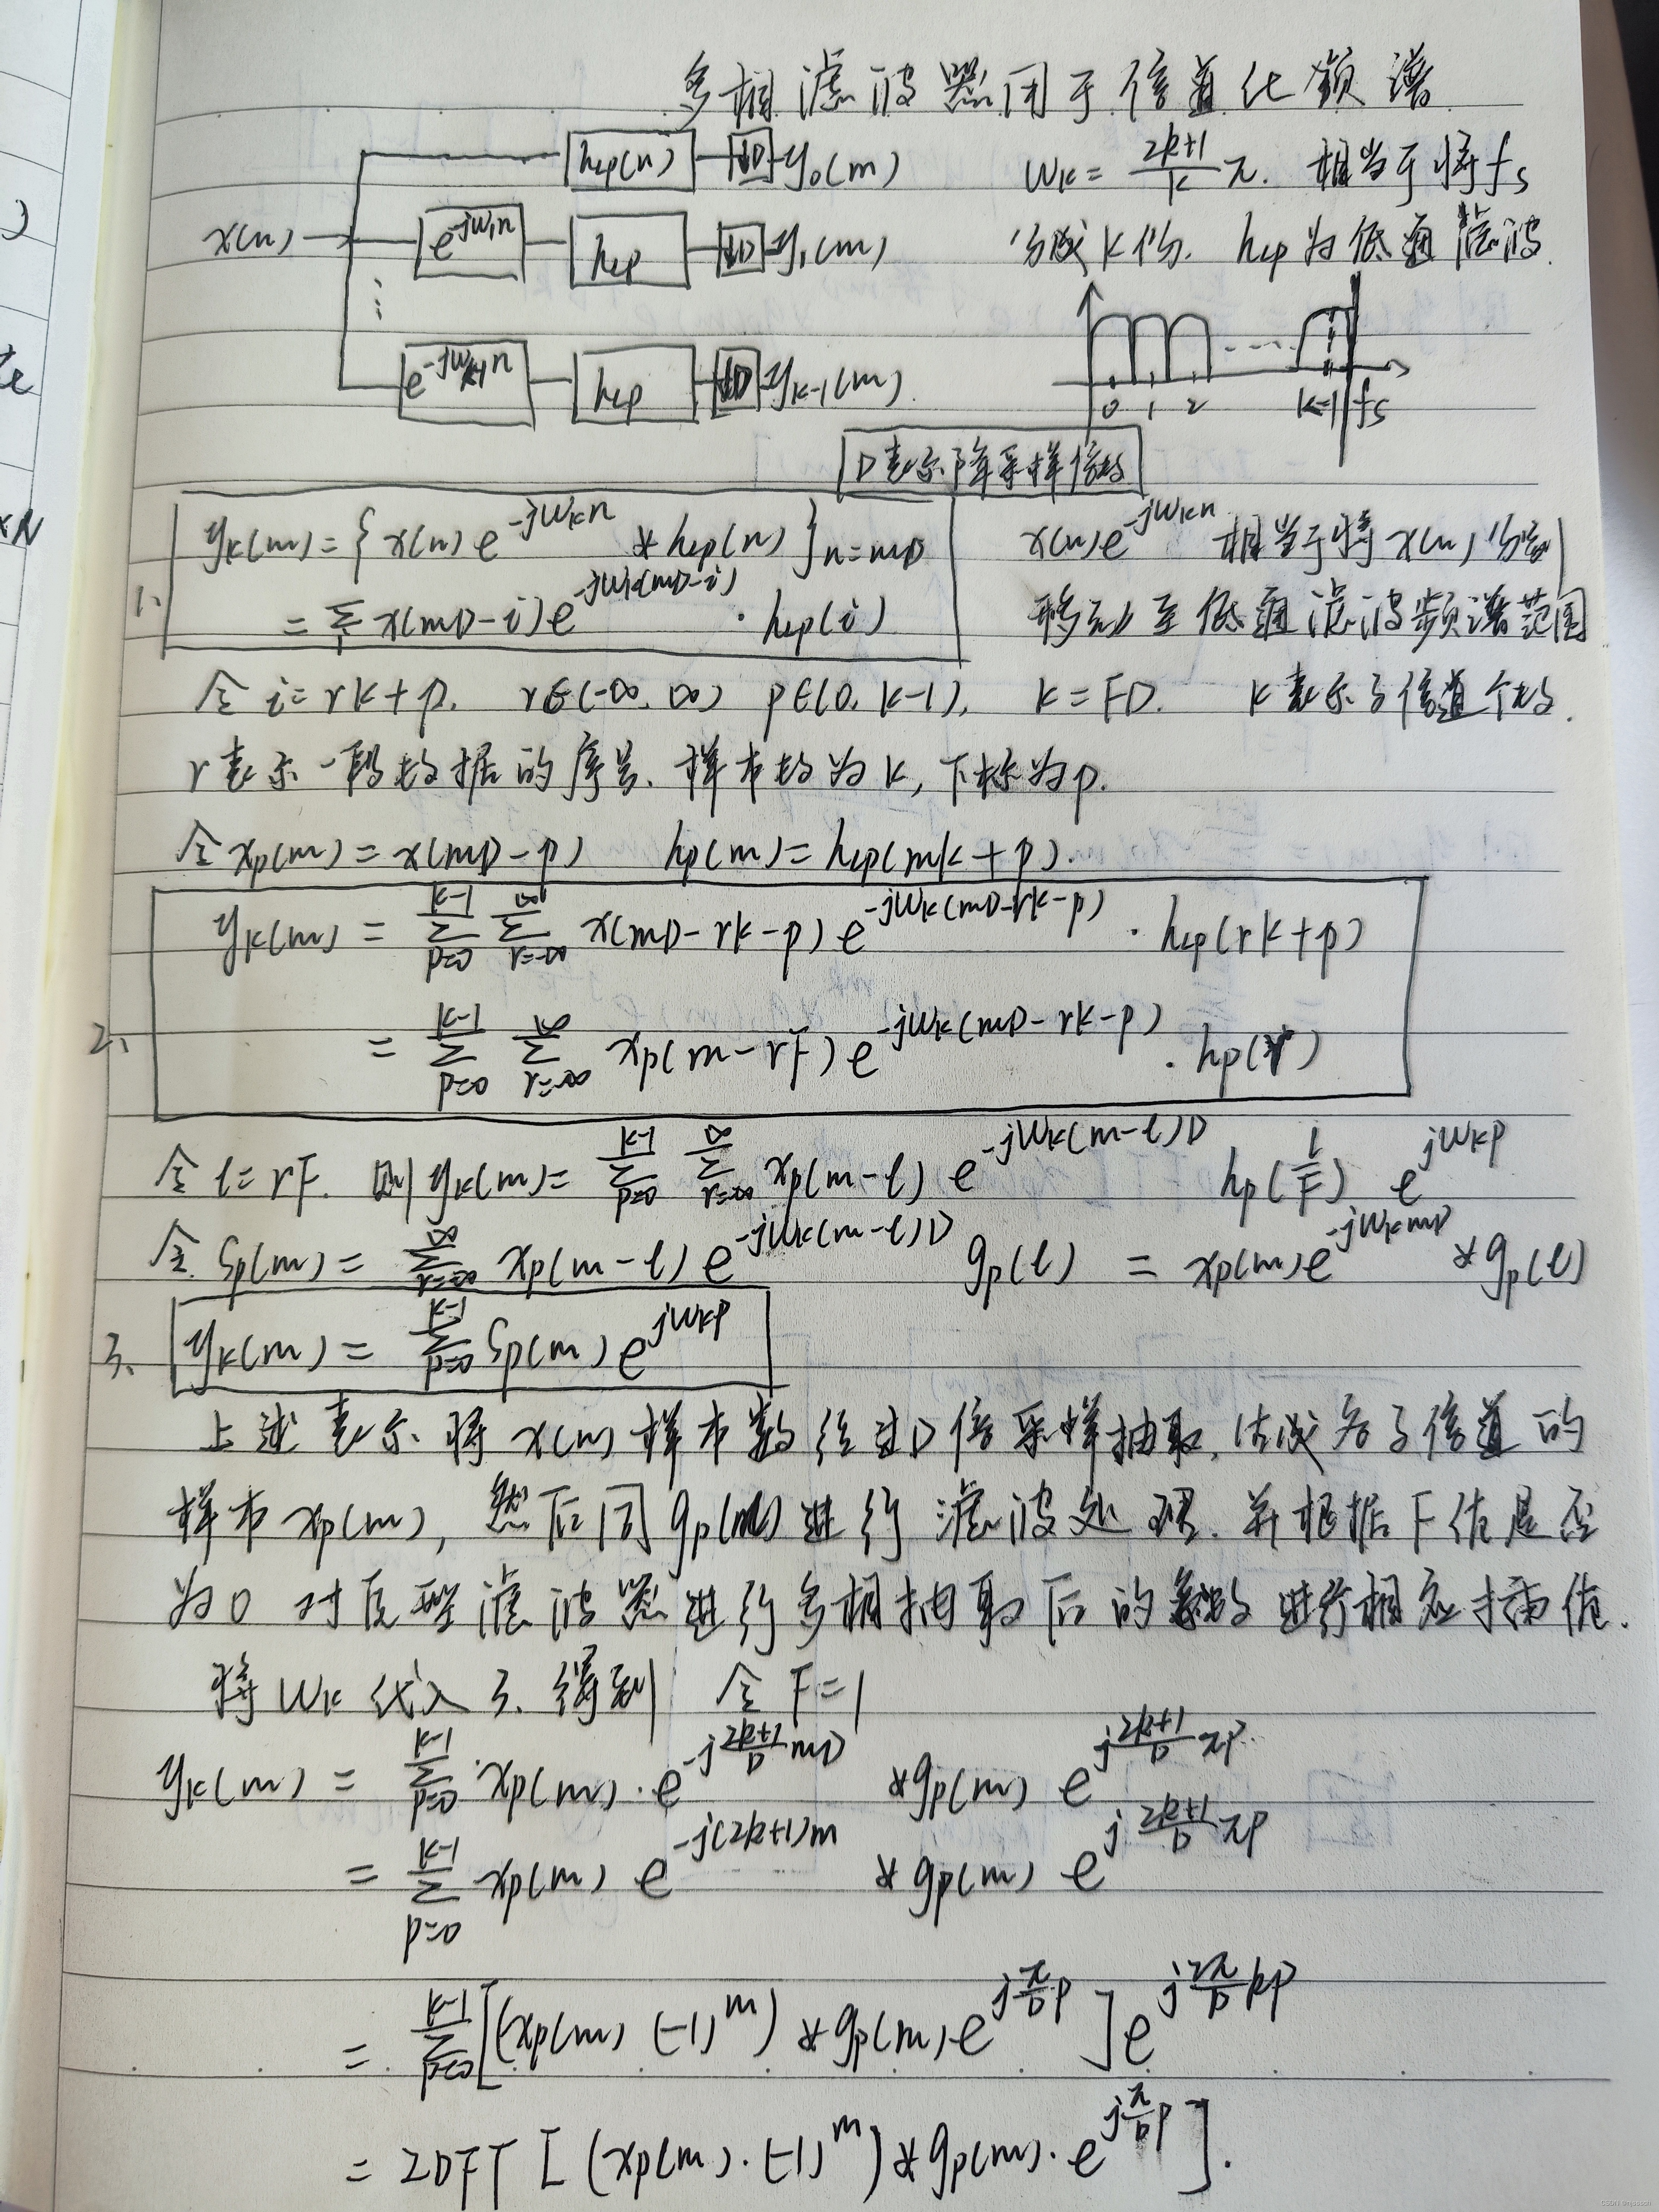 多相滤波器用于信道化频谱
x(n) h_LP(n) ↓D y_0(m)
e^{-jw_1n} h_LP ↓D y_1(m)
e^{-jw_{k-1}n} h_LP ↓D y_{k-1}(m)
w_k = \frac{2k+1}{K}π. 相当于将fs
分成K份. h_LP为低通滤波.
0 1 2 ---- K-1 fs
D表示降采样倍数
1、 y_k(m) = { x(n) e^{-jw_kn} * h_LP(n) }_{n=mD}
= Σ_i x(mD-i) e^{-jw_k(mD-i)} · h_LP(i)
x(n)e^{-jw_kn} 相当于将x(n)分别
移动至低通滤波频谱范围
令 i=rk+p. r∈(-∞,∞) p∈(0, k-1), K=FD. K表示子信道个数.
r表示一段数据的序号. 样本数为K, 下标为p.
令 x_p(m) = x(mD-p) h_p(m) = h_LP(mk+p).
2、 y_k(m) = \sum_{p=0}^{k-1} \sum_{r=-∞}^{∞} x(mD-rk-p) e^{-jw_k(mD-rk-p)} · h_LP(rk+p)
= \sum_{p=0}^{k-1} \sum_{r=-∞}^{∞} x_p(m-rF) e^{-jw_k(mD-rk-p)} · h_p(r)
令 l=rF. 则 y_k(m) = \sum_{p=0}^{k-1} \sum_{r=-∞}^{∞} x_p(m-l) e^{-jw_k(m-l)D} h_p(\frac{l}{F}) e^{jw_kp}
令 S_p(m) = \sum_{r=-∞}^{∞} x_p(m-l) e^{-jw_k(m-l)D} g_p(l) = x_p(m)e^{-jw_kmD} * g_p(l)
3、 y_k(m) = \sum_{p=0}^{k-1} S_p(m) e^{jw_kp}
上述表示. 将x(m)样本数经过D倍采样抽取. 估成各子信道的
样本x_p(m), 然后同g_p(m)进行滤波处理. 并根据F值是否
为0 对原型滤波器进行多相抽取后的系数进行相应插值.
将w_k代入3. 得到 令F=1
y_k(m) = \sum_{p=0}^{k-1} x_p(m) · e^{-j\frac{2k+1}{D}mD} * g_p(m) e^{j\frac{2k+1}{D}πp}
= \sum_{p=0}^{k-1} x_p(m) e^{-j(2k+1)m} * g_p(m) e^{j\frac{2k+1}{D}πp}
= \sum_{p=0}^{k-1} [(x_p(m) (-1)^m) * g_p(m) e^{j\frac{π}{D}p}] e^{j\frac{2π}{D}kp}
= IDFT [ (x_p(m)·(-1)^m) * g_p(m)· e^{j\frac{π}{D}p} ].